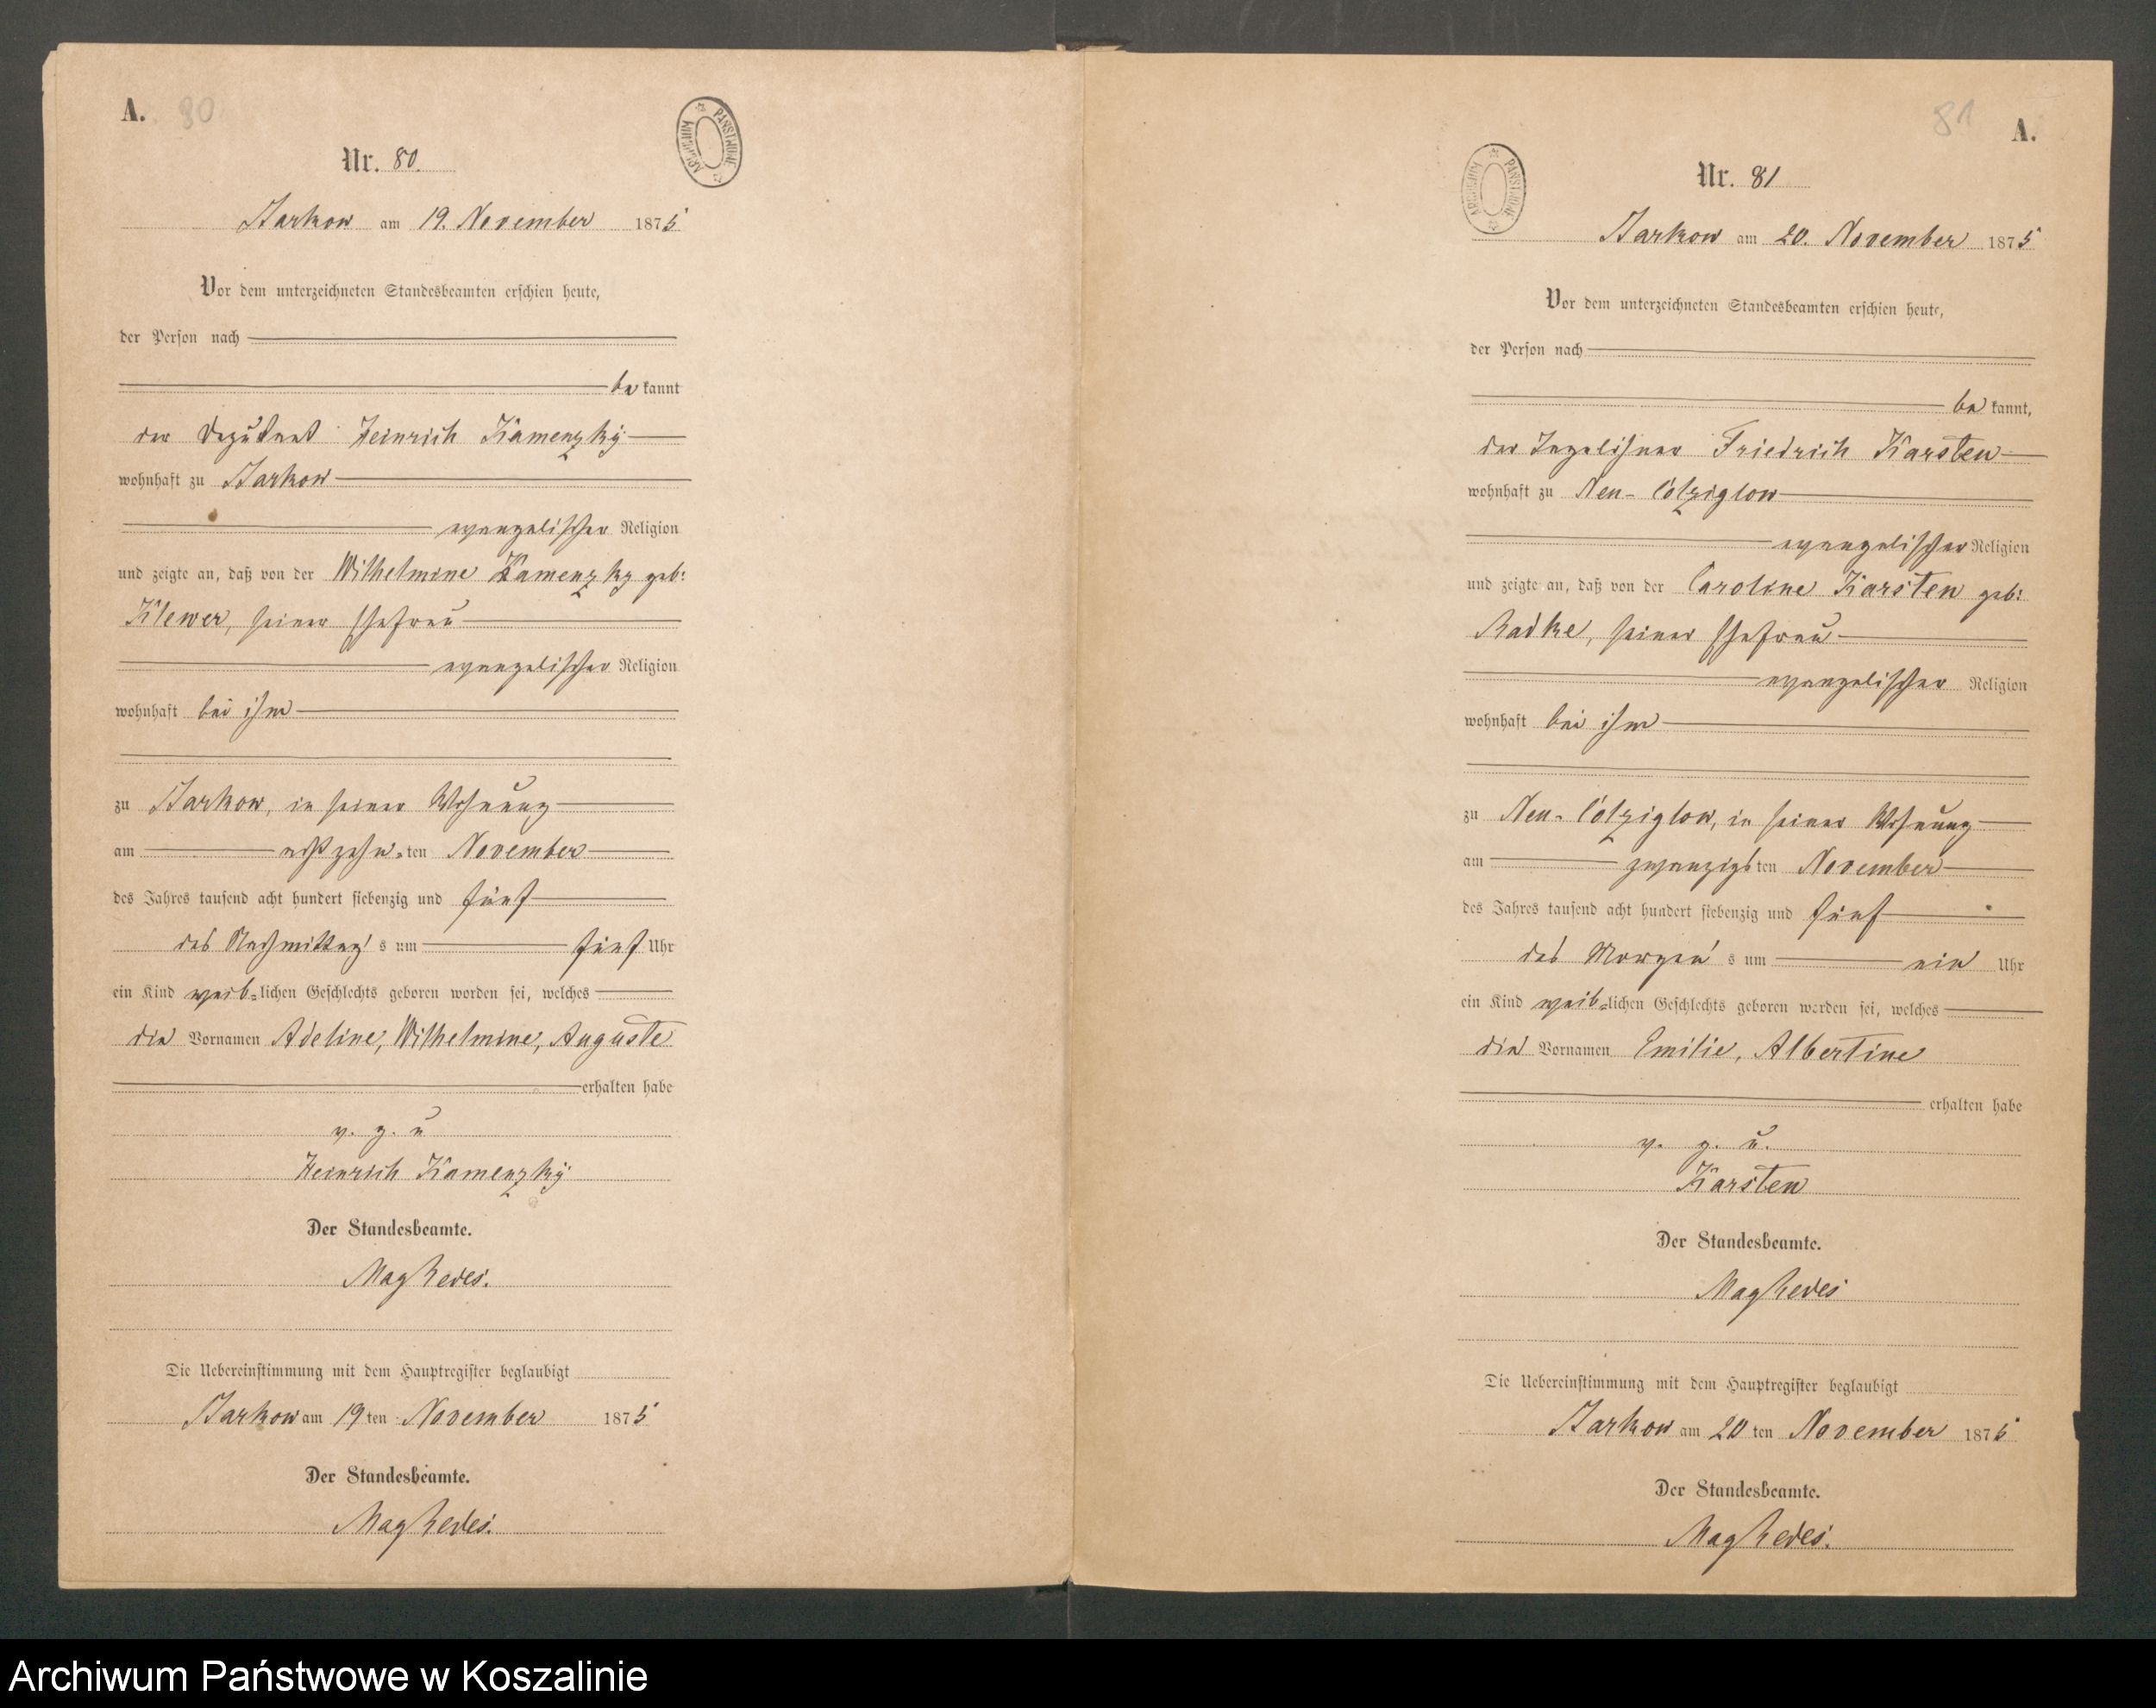 A. 80
ARCHIWUM PAŃSTWOWE
Nr. 80.
Starkow am 19. November 1875
Vor dem unterzeichneten Standesbeamten erschien heute,
der Person nach
be kannt
der Deputant Heinrich Kamenzky
wohnhaft zu Starkow
evangelischer Religion
und zeigte an, daß von der Wilhelmine Kamenzky geb:
Klewer, seiner Ehefrau
evangelischer Religion
wohnhaft bei ihm
zu Starkow, in seiner Wohnung
am achtzehn-ten November
des Jahres tausend acht hundert siebenzig und fünf
des Nachmittag's um fünf Uhr
ein Kind weib-lichen Geschlechts geboren worden sei, welches
die Vornamen Adeline, Wilhelmine, Auguste
erhalten habe
v. g. u
Heinrich Kamenzky
Der Standesbeamte.
Die Uebereinstimmung mit dem Hauptregister beglaubigt
Starkow am 19ten November 1875
Der Standesbeamte.
81 A.
ARCHIWUM PAŃSTWOWE
Nr. 81
Starkow am 20. November 1875
Vor dem unterzeichneten Standesbeamten erschien heute,
der Person nach
be kannt,
der Tagelöhner Friedrich Karsten
wohnhaft zu Neu-Cölziglow
evangelischer Religion
und zeigte an, daß von der Caroline Karsten geb:
Radke, seiner Ehefrau
evangelischer Religion
wohnhaft bei ihm
zu Neu-Cölziglow, in seiner Wohnung
am zwanzigsten November
des Jahres tausend acht hundert siebenzig und fünf
des Morgen's um ein Uhr
ein Kind weib-lichen Geschlechts geboren worden sei, welches
die Vornamen Emilie, Albertine
erhalten habe
v. g. u.
Karsten
Der Standesbeamte.
Die Uebereinstimmung mit dem Hauptregister beglaubigt
Starkow am 20ten November 1875
Der Standesbeamte.
Archiwum Państwowe w Koszalinie